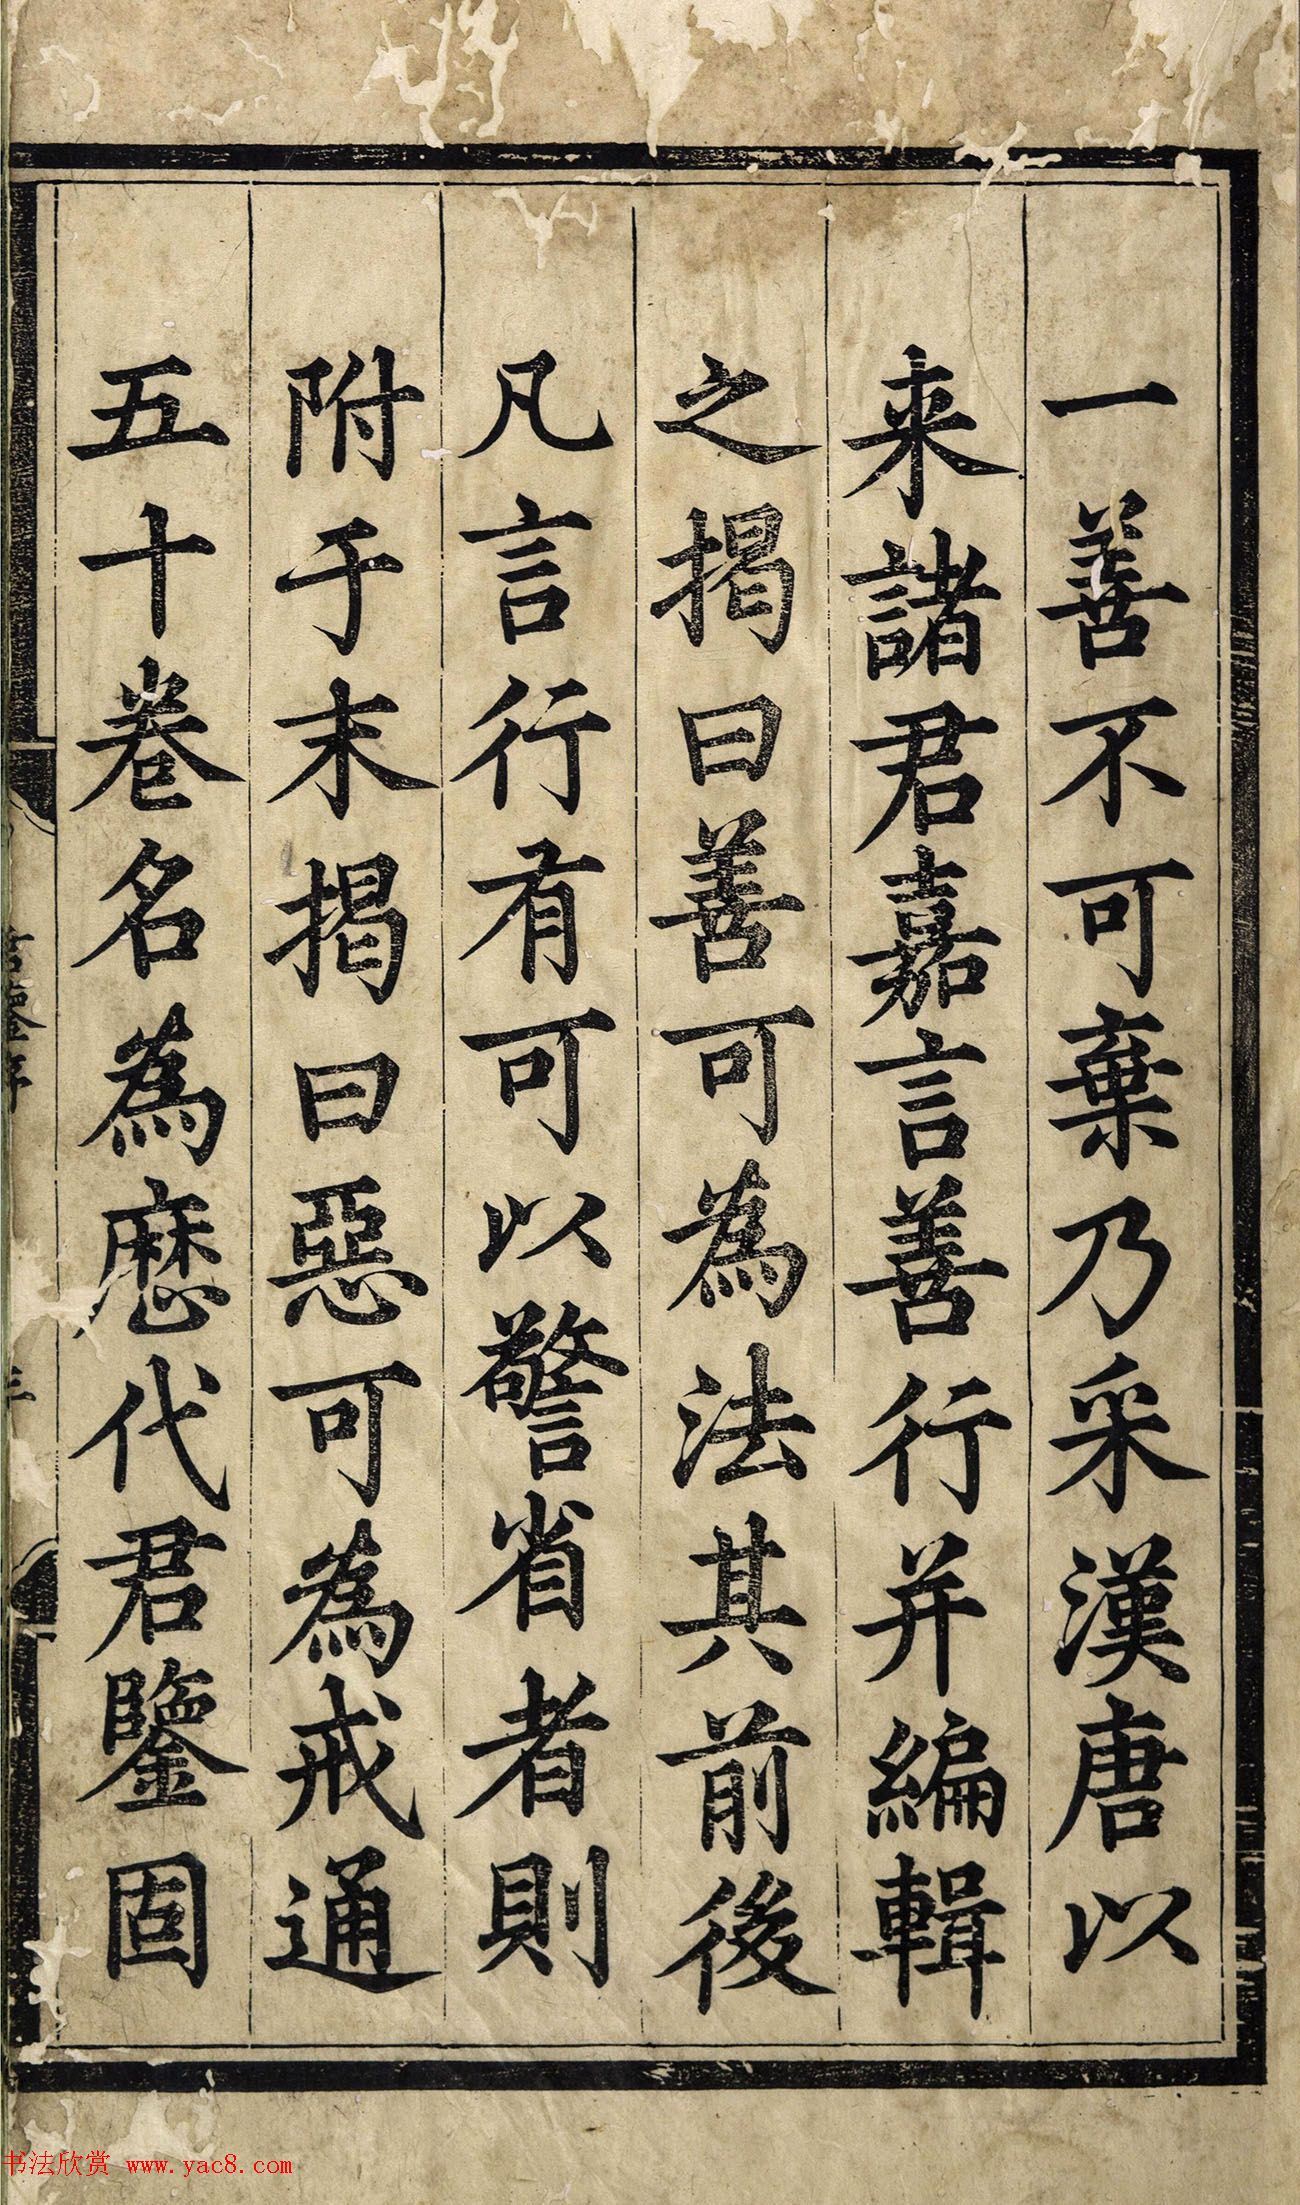 一善不可棄乃采漢唐以
来諸君嘉言善行并編輯
之揭曰善可為法其前後
凡言行有可以警省者則
附于末揭曰惡可為戒通
五十卷名為歷代君鑒固
三
书法欣赏 www.yac8.com